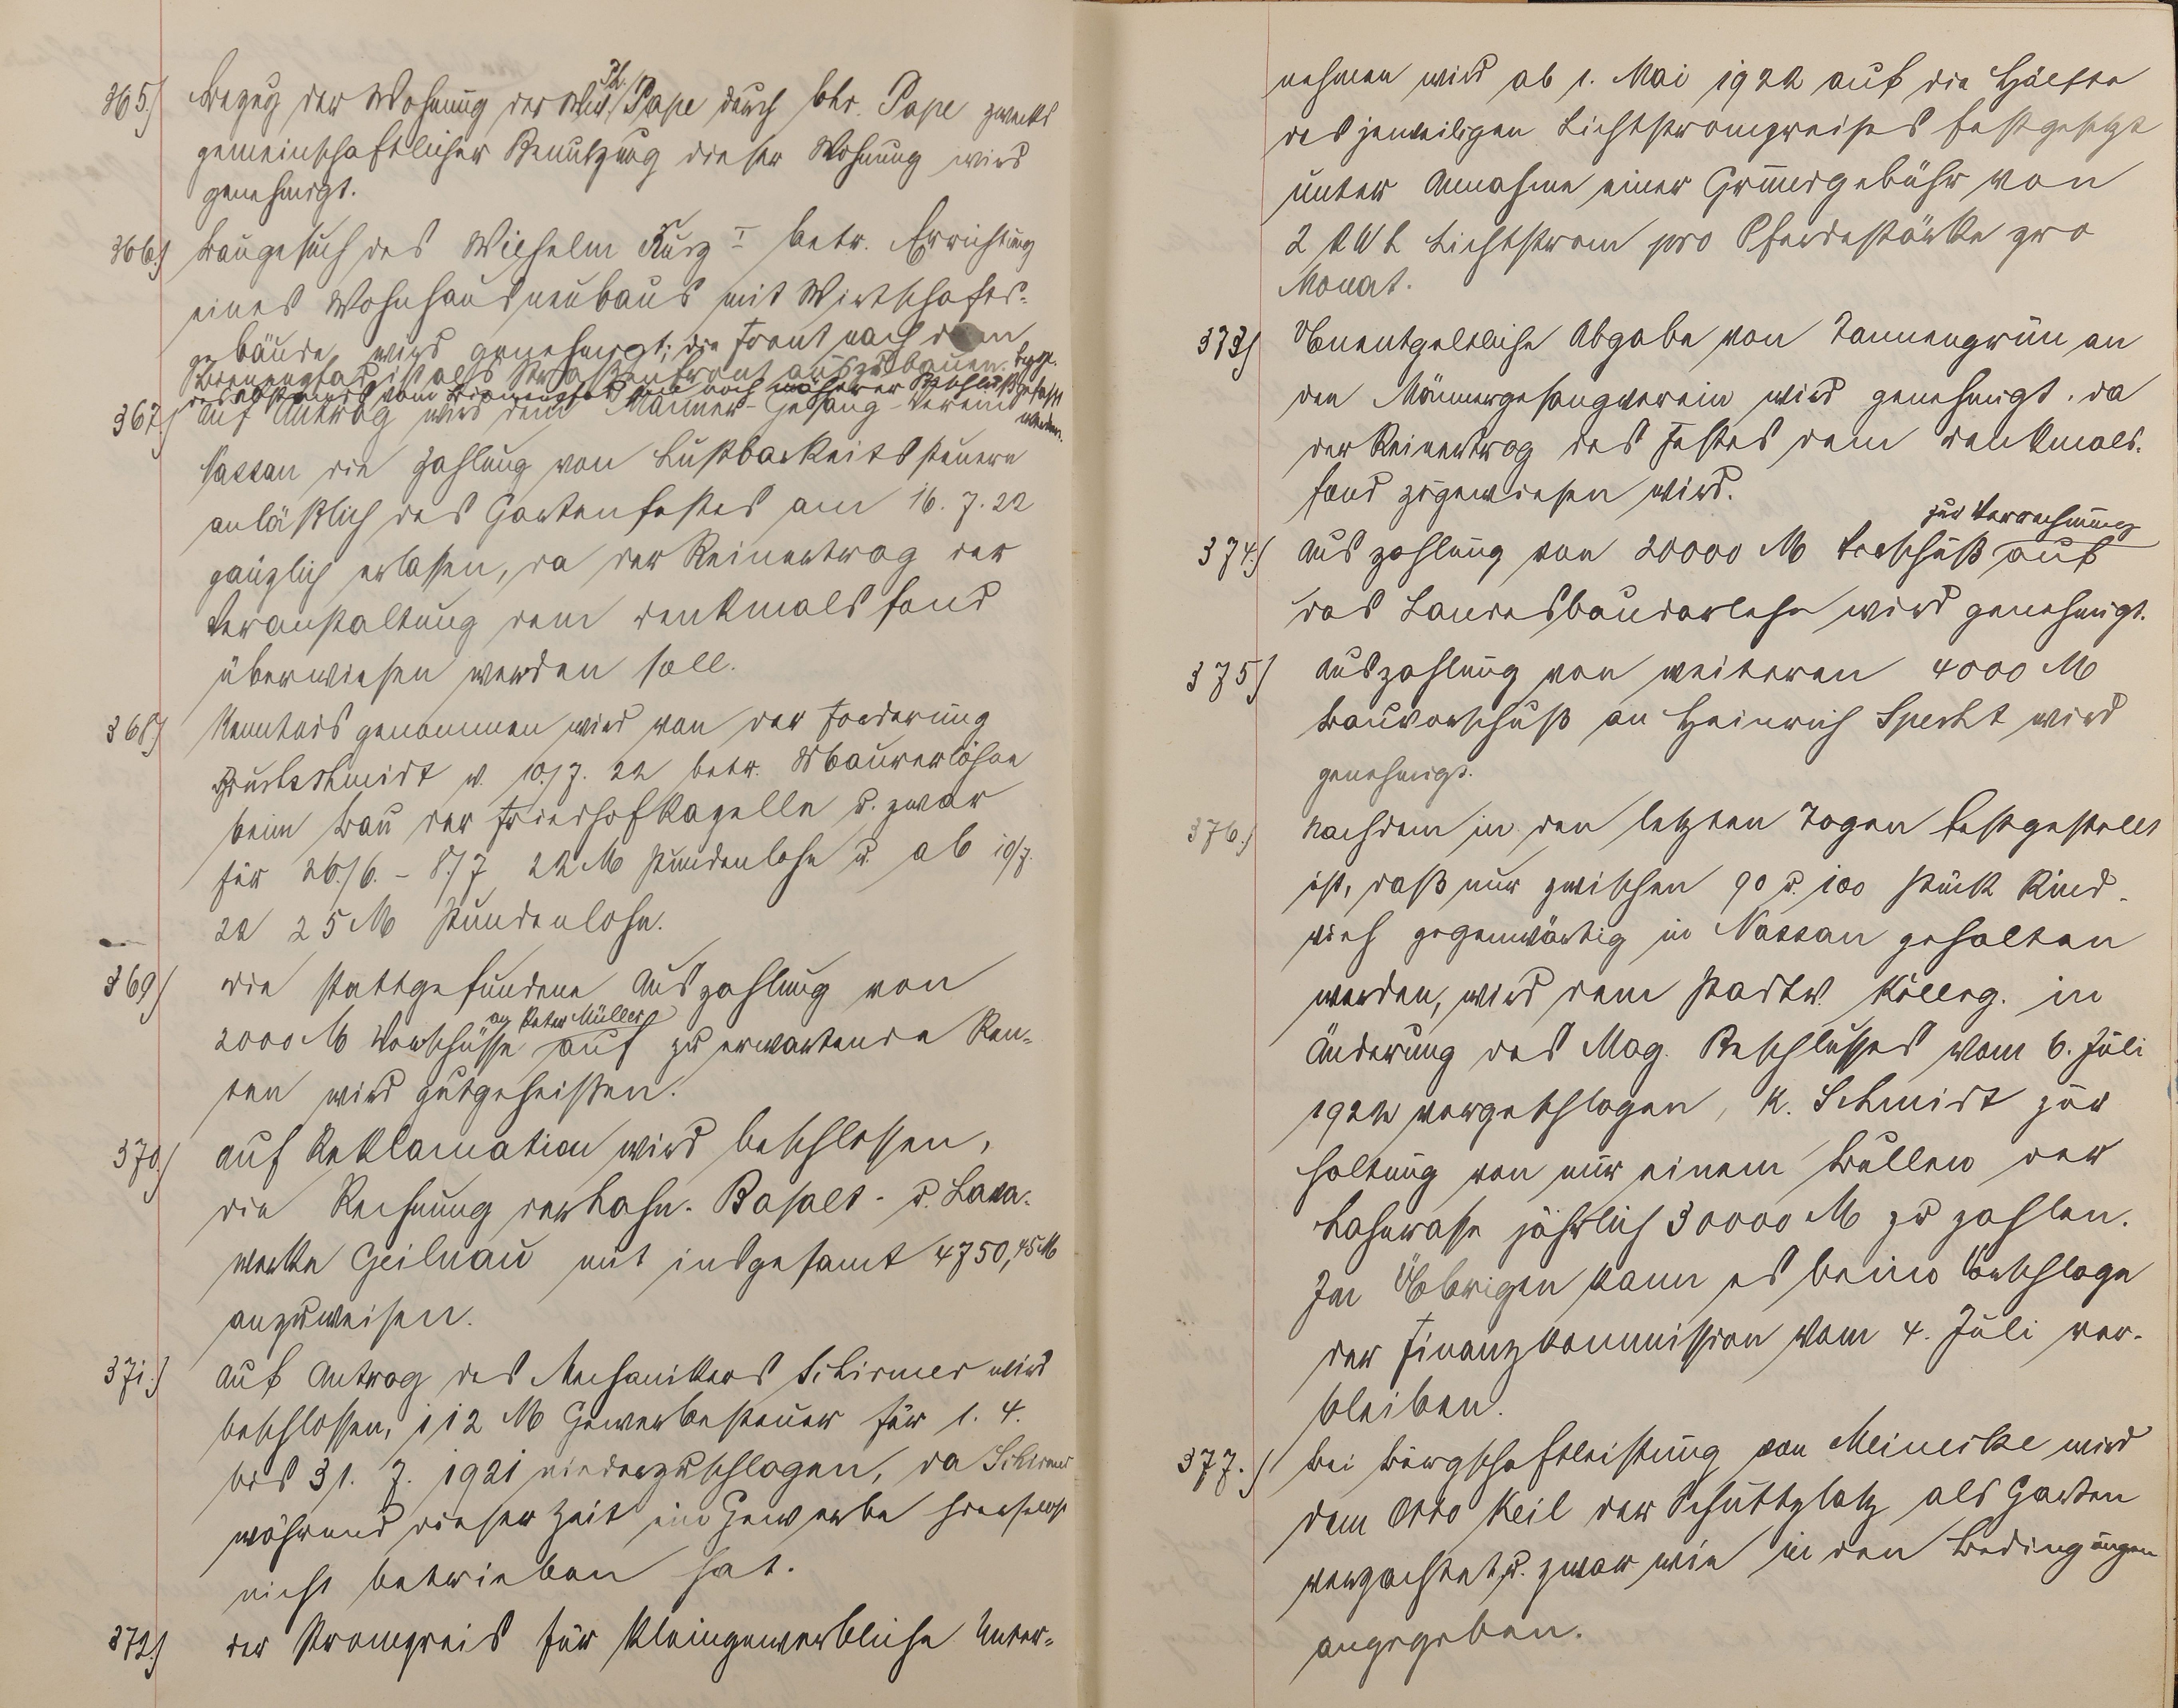 365.) Bezug der Wohnung der Ww. Th. Pape durch Chr. Pape zwecks
gemeinschaftlicher Benutzung dieser Wohnung wird
genehmigt.
366.) Baugesuch des Wilhelm Kurz I betr. Errichtung
eines Wohnhausneubaus mit Wirtschafts-
gebäude wird genehmigt; die Front nach dem
Bienengarten ist als Straßenfront auszubauen. Bzgl.
des Abstands vom soll noch näherer Beschluß gefaßt
werden.
367.) Auf Antrag wird dem Männer-Gesang-Verein
Nassau die Zahlung von Lustbarkeitssteuern
anläßlich des Gartenfestes am 16. 7. 22
gänzlich erlassen, da der Reinertrag der
Veranstaltung dem Denkmalsfond
überwiesen werden soll.
368) Kenntnis genommen wird von der Forderung
v. 10./7. 22 betr. Maurerlöhne
beim Bau der Friedhofkapelle u. zwar
für 26./6. - 8./7 22 M Stundenlohn u. ab 10/7.
22 25 M Stundenlohn.
369) Die stattgefundene Auszahlung von
2000 M Vorschüsse an Peter Müller auf zu erwartende Ren-
ten wird gutgeheißen.
370.) Auf Reklamation wird beschlossen,
die Rechnung der Lahn-Basalt- u. Lava-
werke Geilnau mit insgesamt 4750,45 M
anzuweisen.
371.) Auf Antrag des Mechanikers Schirmer wird
beschlossen, 112 M Gewerbesteuer für 1. 4.
bis 31. 7. 1921 niederzuschlagen, da Schirmer
während dieser Zeit ein Gewerbe hierselbst
nicht betrieben hat.
372.) Der Strompreis für kleingewerbliche Unter-
nehmen wird ab 1. Mai 1922 auf die Hälfte
des jeweiligen Lichtstrompreises festgesetzt
unter Annahme einer Grundgebühr von
2 KWh Lichtstrom pro Pferdestärke pro
Monat.
373) Unentgeltliche Abgabe von Tannengrün an
den Männergesangverein wird genehmigt, da
der Reinertrag des Festes dem Denkmals-
fond zugewiesen wird.
374.) Auszahlung von 20000 M Vorschuß zur Verrechnung auf
das Landesbaudarlehn wird genehmigt.
375) Auszahlung von weiteren 4000 M
Bauvorschuß an Heinrich Specht wird
genehmigt.
376.) Nachdem in den letzten Tagen festgestellt
ist, daß nur zwischen 90 u. 100 Stück Rind-
vieh gegenwärtig in Nassau gehalten
werden, wird dem Stadtv. Kolleg. in
Änderung des Mag. Beschlusses vom 6. Juli
1922 vorgeschlagen, K. Schmidt zur
Haltung von nur einem Bullen der
Lahnrasse jährlich 30000 M zu zahlen.
Im Übrigen kann es beim Vorschlage
der Finanzkommission vom 4. Juli ver-
bleiben.
377.) Bei Bürgschaftleistung von Meinecke wird
dem Otto Keil der Schuttplatz als Garten
verpachtet u. zwar wie in den Bedingungen
angegeben.